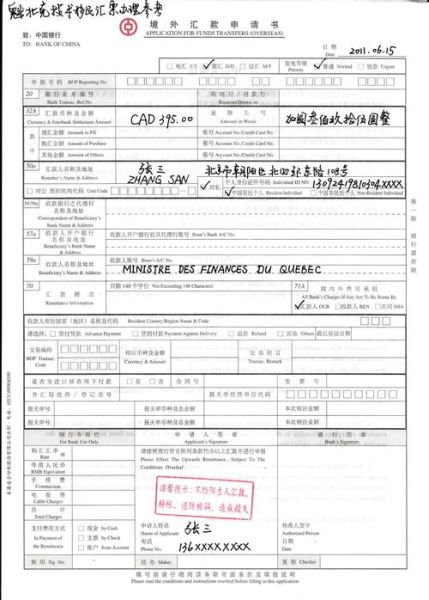 境外汇款申请书
APPLICATION FOR FUNDS TRANSFERS (OVERSEAS)
致：中国银行
TO: BANK OF CHINA
日期
Date 2011.06.15
电汇 T/T 票汇 D/D 信汇 M/T
发电等级
Priority
普通 Normal 加急 Urgent
申报号码 BOP Reporting No.
20 银行业务编号
Bank Transac. Ref.No
收电行/付款行
Receiver/Drawn on
32A 汇款币种及金额
Currency & Interbank Settlement Amount
CAD 395.00
金额大写
Amount in Words
加圆叁佰玖拾伍圆整
其中
现汇金额 Amount in FX
账号 Account No./Credit Card No.
购汇金额 Amount of Purchase
账号 Account No./Credit Card No.
其他金额 Amount of Others
账号 Account No./Credit Card No.
50a 汇款人名称及地址
Remitter's Name & Address
张三
ZHANG SAN
北京市朝阳区北四环东路108号
对公 组织机构代码 Unit Code
对私
个人身份证件号码 Individual ID NO.
13072419810304XXXX
中国居民个人 Resident Individual 中国非居民个人 Non-Resident Individual
54/56a 收款银行之代理行
名称及地址
Correspondent of Beneficiary's
Bank Name & Address
57a 收款人开户银行
名称及地址
Beneficiary's Bank Name
& Address
收款人开户银行在其代理行账号 Bene's Bank A/C No.
59a 收款人名称及地址
Beneficiary's Name & Address
收款人账号 Bene's A/C No.
MINISTRE DES FINANCES DU QUEBEC
70 汇款附言
Remittance Information
只限140个字位 Not Exceeding 140 Characters
71A 国内外费用承担
All Bank's Charges If Any Are To Be Borne By
汇款人 OUR 收款人 BEN 共同 SHA
收款人常驻国家（地区）名称及代码 Resident Country/Region Name & Code
请选择： 预付货款 Advance Payment 货到付款 Payment Against Delivery 退款 Refund 其他 Others 最迟装运日期
交易编码
BOP Transac.
Code
相应币种及金额
Currency & Amount
交易附言
Transac. Remark
是否为进口核查项下付款 是 否 合同号 发票号
外汇局批件/登记表号
报关单经营单位代码
报关单号 报关单币种及总金额 本次核注金额
报关单号 报关单币种及总金额 本次核注金额
银行专用栏
For Bank Use Only
申请人签章
Applicant's Signature
银行签章
Bank's Signature
购汇汇率
Rate
等值人民币
RMB Equivalent
手续费
Commission
电报费
Cable Charges
合计
Total Charges
请按照贵行背页所列条款代办以上汇款并进行申报
Please Effect The Upwards Remittance, Subject To The
Conditions Overleaf
温馨提示：不给陌生人汇款、
转帐，谨防被骗，造成损失
支付费用方式
In Payment of
the Remittance
现金 by Cash
支票 by Check
账户 from Account
申请人姓名
Name of Applicant
张三
电话
Phone No.
136XXXXXXXX
核准人签字
Authorized Person
日期
Date
核印 Sig. Ver.
经办 Maker
复核 Checker
填写前请仔细阅读各联背面条款及填报说明
Please read the conditions and instructions overleaf before filling in this application